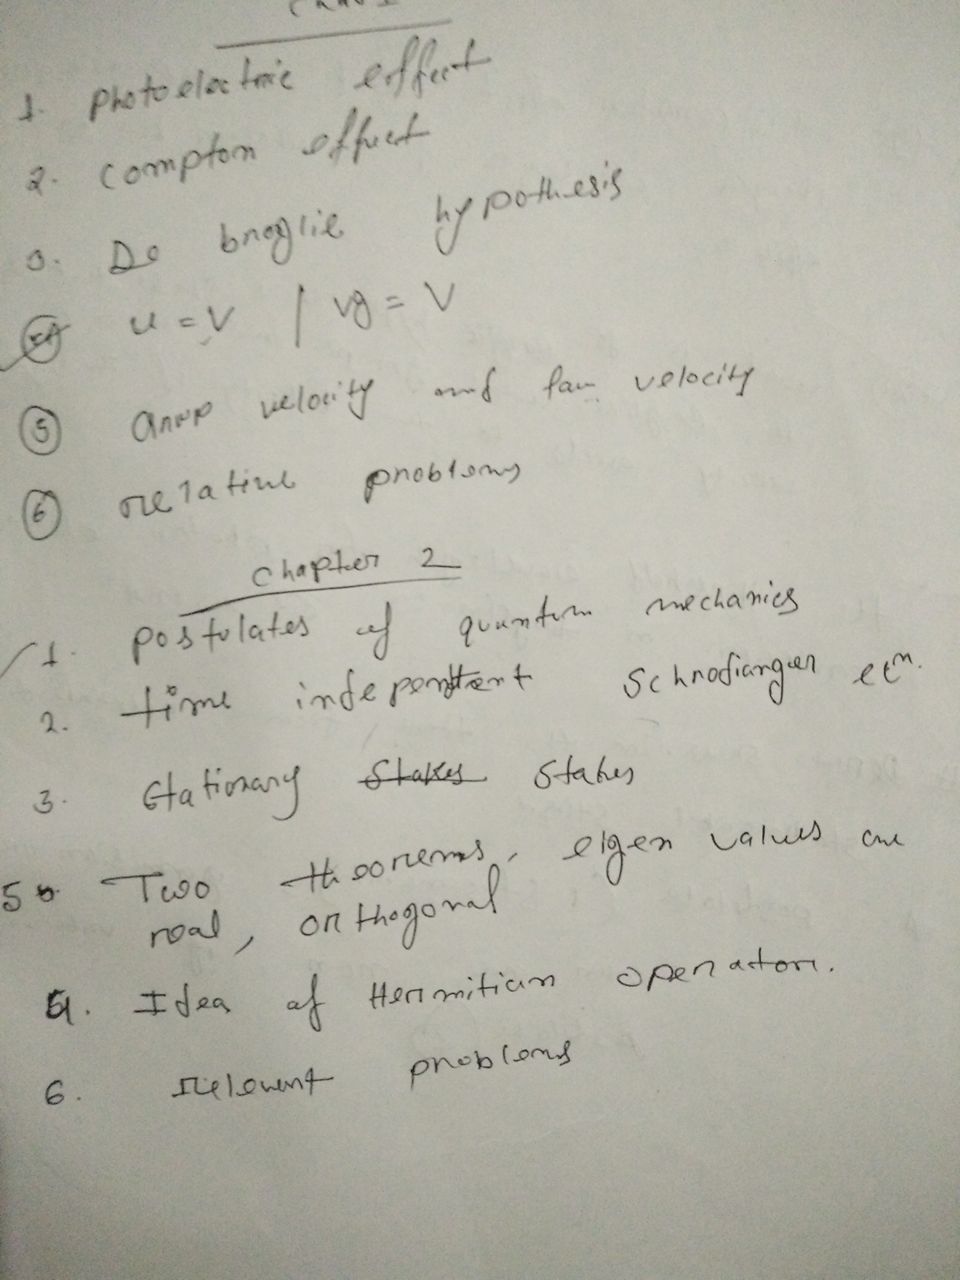 1. photoelectric effect
2. compton effect
3. De broglie hypothesis
4 u = v | vg = v
5 velocity and velocity
6 relative problems
Chapter 2
1. postulates of quantum mechanics
2. time independent Schrodianger eqn.
3. Stationary States States
5 Two theorems, eigen values are
real, orthogonal
4. Idea of Hermitian operator.
6. relevent problems